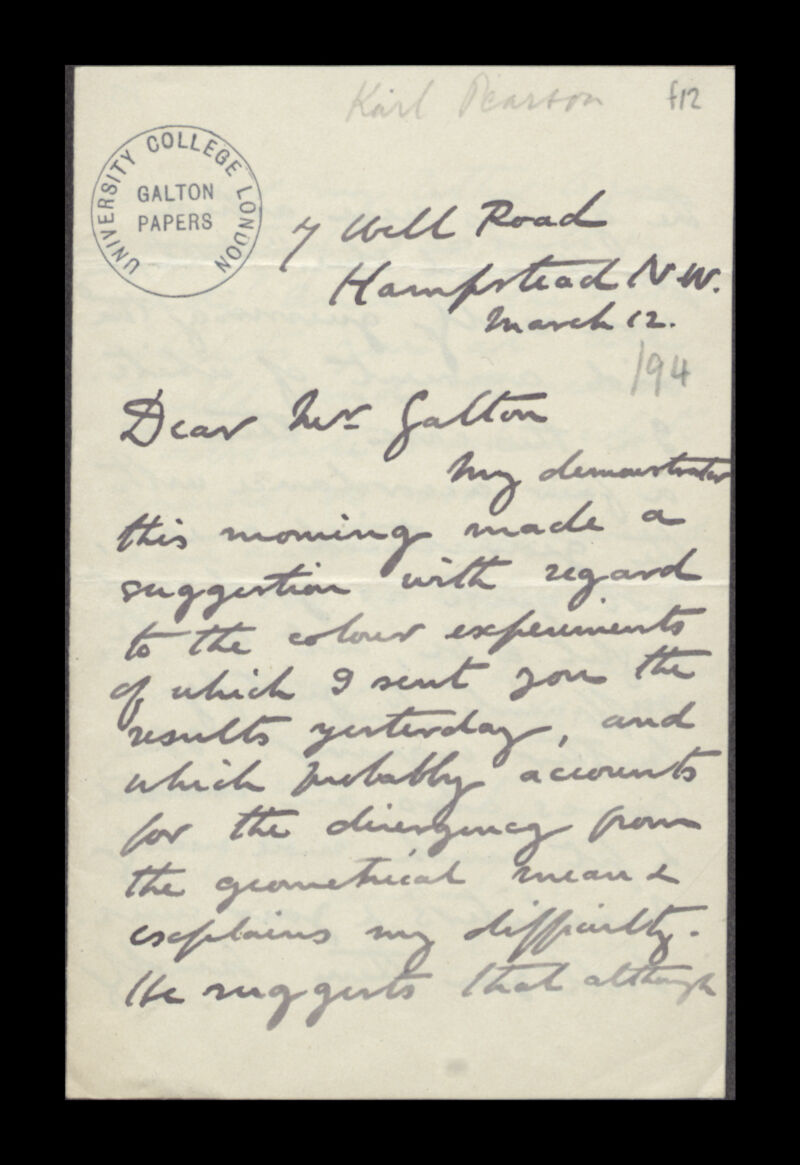 Karl Pearson f12
UNIVERSITY COLLEGE LONDON
GALTON
PAPERS
7 Well Road
Hampstead N.W.
March 12.
/94
Dear Mr Galton
My demonstrator
this morning made a
suggestion with regard
to the colour experiments
of which I sent you the
results yesterday, and
which probably accounts
for the divergency from
the geometrical mean &
explains my difficulty.
He suggests that although